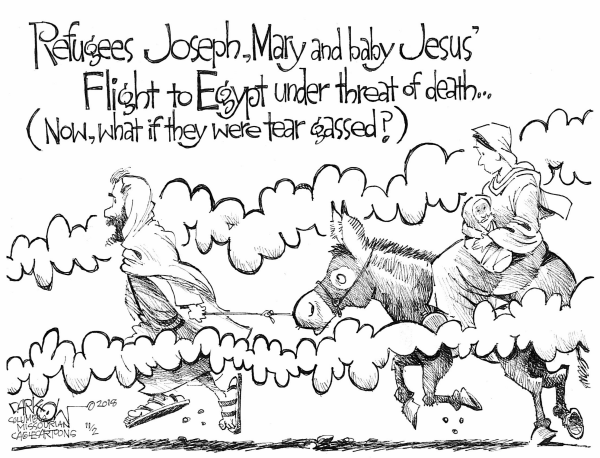 Refugees Joseph, Mary and baby Jesus'
Flight to Egypt under threat of death...
(Now, what if they were tear gassed?)
DARKOW
©2018
COLUMBIA
MISSOURIAN
11/2
CAGLECARTOONS